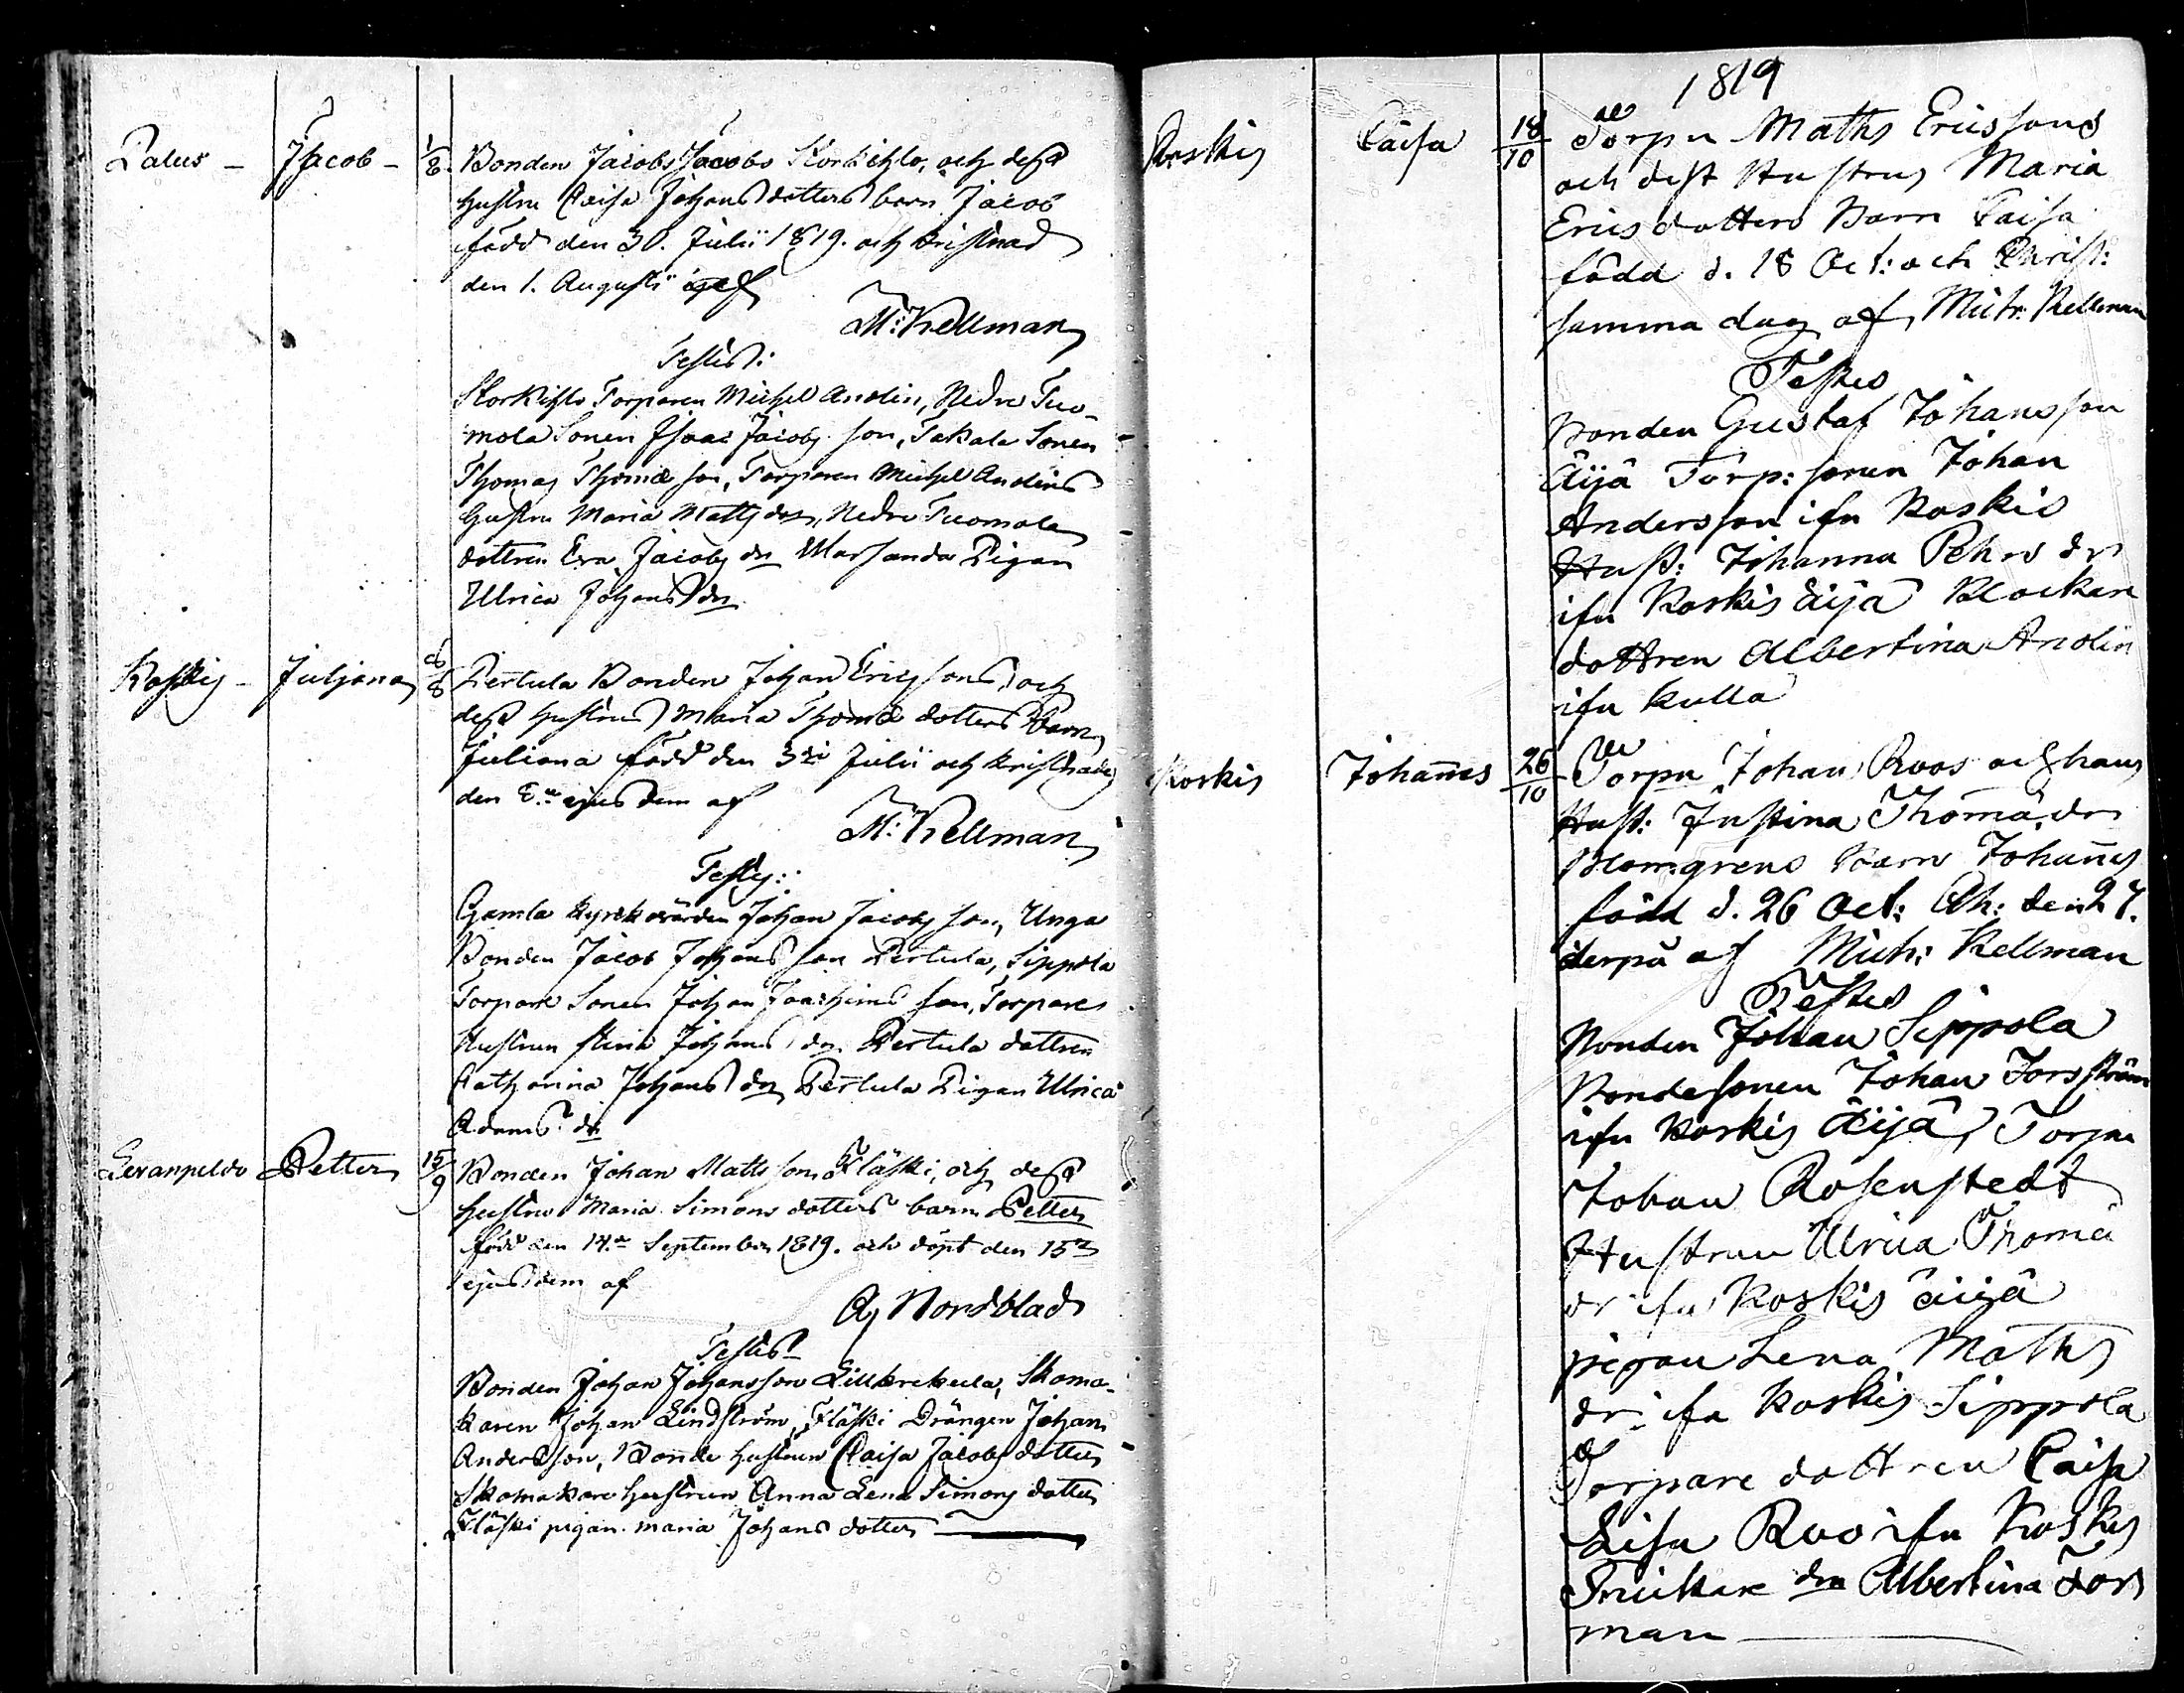 Palus - Jacob - 1/8 Bonden Jacob Jacobs Storkihlo, och dess
hustru Caisa Johansdotters barn Jacob
född den 30. Julii 1819. och kristnad
den 1. Augusti af
M: Kellman
Testes:
Storkihlo Torparen Michel Anolin, Nedre Tuo-
mola Sonen Isaac Jacobs son, Takala Sonen
Thomas Thomæ son, Torparen Michel Anolins
hustru Maria Matts dr, Nedre Tuomola
dottren Eva Jacobs dr Marsanda Pigan
Ulrica Johans dr
Koskis - Juliana 8/8 Pertula Bonden Johan Ericssons och
dess hustrus Maria Thomæ dotters Barn
Juliana född den 3di Julii och kristnades
den 8.de ejusdem af
M: Kellman
Testes:
Gamla kyrkovärden Johan Jacobs son, Unga
Bonden Jacob Johans son Pertula, Sippola
Torpare Sonen Johan Joachims son, Torpare
Hustrun Stina Johans dr Pertula dottren
Catharina Johans dr Pertula Pigan Ulrica
Adams dr
Levanpeldo Petter 15/9 Bonden Johan Matts son Fläski, och dess
hustrus Maria Simons dotters barn Petter
född den 14.de September 1819. och döpt den 15de
ejusdem af
Nordblad
Testes
Bonden Johan Johansson Lillkrekula, Skoma-
karen Johan Lindström, Fläski Drängen Johan
Andersson, Bonde hustrun Caisa Jacobs dotter
Skomakare hustrun Anna Lena Simons dotter
Fläski pigan Maria Johans dotter
1819
Koskis Caisa 18/10 Torpn Maths Erissons
och dess Hustrus Maria
Ericsdotters Barn Caisa
född d. 18 Oct: och Christ:
samma dag af Mich: Kellman
Testes
Bonden Gustaf Johansson
Äijä Torp: sonen Johan
Andersson ifn Koskis
Hust: Johanna Pehrs dr
ifn Koskis äijä Klockare
dottren Albertina Anolin
ifn Kulla
Koskis Johannes 26/10 Torpn Johan Roos och hans
Hust: Justina Thomæ dr
Blomgrens Barn Johannes
född d. 26 Oct: Ch: den 27.
derpå af Mich: Kellman
Testes
Bonden Johan Sippola
Bondesonen Johan Forsström
ifn Koskis äijä, Torpn
Johan Rosenstedt
Hustrun Ulrica Thomæ
dr ifn Koskis äijä
pigan Lena Maths
dr ifn Koskis Sippola
Torpare dottren Caisa
Lisa Roos ifn Koskis
dr Albertina For
man